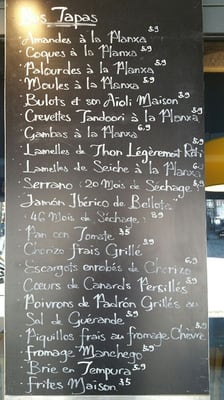 Nos Tapas
Amandes à la Planxa 5.9
Coques à la Planxa 5.9
Palourdes à la Planxa 5.9
Moules à la Planxa 5.9
Bulots et son Aioli Maison 5.9
Crevettes Tandoori à la Planxa 5.9
Gambas à la Planxa 6.9
Lamelles de Thon Légèrement
Lamelles de Seiche à la Planxa
Serrano : 20 Mois de Séchage
Jamón Ibérico de Bellota
46 Mois de Séchage : 8.9
Pan con Tomate 3.5
Chorizo frais Grillé 5.9
Escargots enrobés de Chorizo 6.9
Coeurs de Canards Persillés 5.9
Poivrons de Padrón Grillés au
Sel de Guérande 5.9
Piquillos frais au fromage Chèvre
fromage Manchego 5.9
Brie en Tempura 5.9
frites Maison 3.5